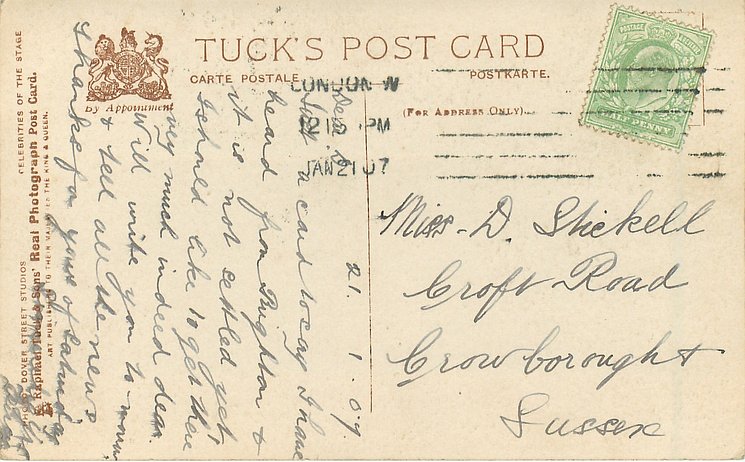 TUCK'S POST CARD
CARTE POSTALE.
POSTKARTE.
By Appointment
(FOR ADDRESS ONLY)
LONDON·W
12 15 PM
JAN 21 07
POSTAGE
HALFPENNY
Miss. D. Stickell
Croft Road
Crowborough
Sussex
21. 1. 07.
Dear D
Just a card to say I have
heard from Brighton &
it is not settled yet,
I should like to get there
very much indeed dear
Will write you to-morrow
& tell all the news
Thanks for yours of Saturday
CELEBRITIES OF THE STAGE
Raphael Tuck & Sons' Real Photograph Post Card.
ART PUBLISHERS TO THEIR MAJESTIES THE KING & QUEEN.
PHOTO DOVER STREET STUDIOS